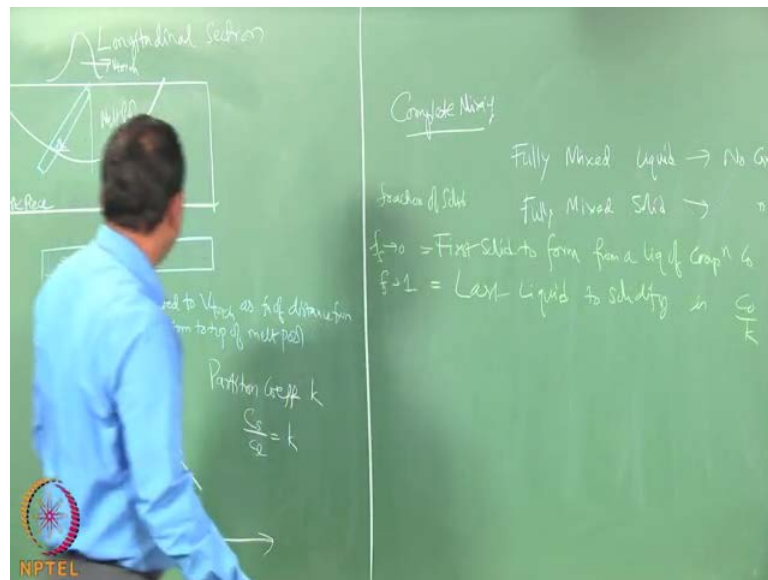 Longitudinal Section
Vtorch
to Vtorch as fn of distance from
to top of melt pool
Partition Coeff k
Cs/Cl = k
Complete Mixing
Fully Mixed Liquid → No
fraction of Solid
Fully Mixed Solid →
fs→0 = First Solid to form from a liq of Compn C0
f→1 = Last Liquid to solidify is C0/k
NPTEL